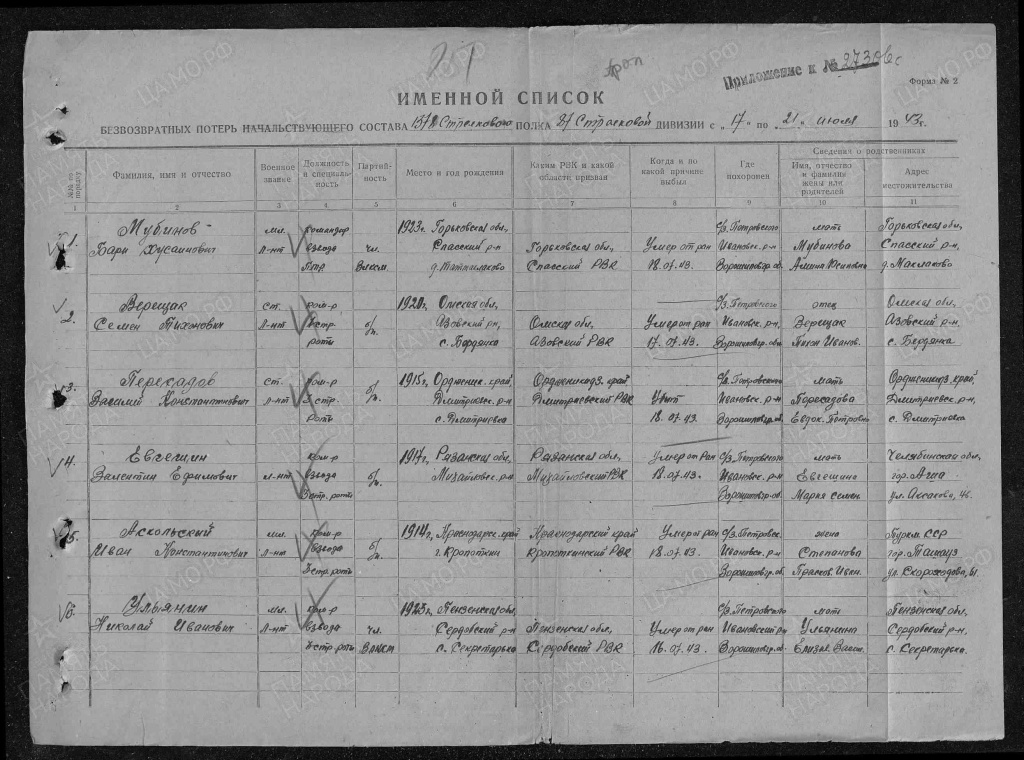 Приложение к № 27306с
Форма № 2
ИМЕННОЙ СПИСОК
БЕЗВОЗВРАТНЫХ ПОТЕРЬ НАЧАЛЬСТВУЮЩЕГО СОСТАВА Стрелкового ПОЛКА Стрелковой ДИВИЗИИ с „17" по „21" июля 1943 г.
№№ по порядку
Фамилия, имя и отчество
Военное звание
Должность и специальность
Партийность
Место и год рождения
Каким РВК и какой области призван
Когда и по какой причине выбыл
Где похоронен
Сведения о родственниках
Имя, отчество и фамилия жены или родителей
Адрес местожительства
1 2 3 4 5 6 7 8 9 10 11
1. Мубинов мл. командир 1923г. Горьковская обл, с/з Петровского мать Горьковская обл,
Бари Хусаинович л-нт взвода чл. Спасский р-н Горьковская обл, Умер от ран Ивановск. р-н Мубинова Спасский р-н,
Спасский РВК 18.07.43. Ворошиловгр. об.
2. Верещак ст. ком-р 1920г. Омская обл, с/з. Петровского отец Омская обл,
Семен Тихонович л-нт стр. б/п. Азовский рн, Омская обл, Умер от ран Ивановск. р-н, Верещак Азовский р-н,
роты с. Бердянка Азовский РВК 17.07.43. Ворошиловгр. об. Тихон Иванов. с. Бердянка
3. ст. ком-р 1915г. Орджоник. край Орджоникидз. край с/з. Петровского мать Орджоникидз. край,
Василий Константинович л-нт стр. б/п. Дмитриевск. р-н Дмитриевский РВК Убит Ивановск. р-н Дмитриевск. р-н,
роты с. Дмитриевка 18.07.43. Ворошиловгр. об. Евдок. Петровна с. Дмитриевка
4. Евгешин ком-р 1917г, Рязанская обл, Рязанская обл, Умер от ран с/з. Петровского мать Челябинская обл,
Валентин Ефимович л-нт взвода б/п. Михайловск. р-н Михайловский РВК 18.07.43. Ивановск. р-н Евгешина
стр. роты Ворошиловгр. об. Мария Семен. ул. Аксакова, 46.
5. Аскольский мл. ком-р 1914г, Краснодарск. край Краснодарский край Умер от ран с/з Петровск. жена Туркм. ССР
Иван Константинович л-нт взвода б/п. г. Кропоткин Кропоткинский РВК 18.07.43. Ивановск. р-н Степанова гор. Ташауз
стр. роты Ворошиловгр. об. Прасков. Ивкн. ул. Скороходова, 61.
6. Ульянин мл. ком-р 1923г, Пензенская обл, с/з. Петровского мать Пензенская обл,
Николай Иванович л-нт взвода чл. Сердовский р-н Пензенская обл, Умер от ран Ивановский рн Ульянина Сердовский р-н,
стр. роты с. Секретарка Сердовский РВК 16.07.43. Ворошиловгр. об. с. Секретарка.